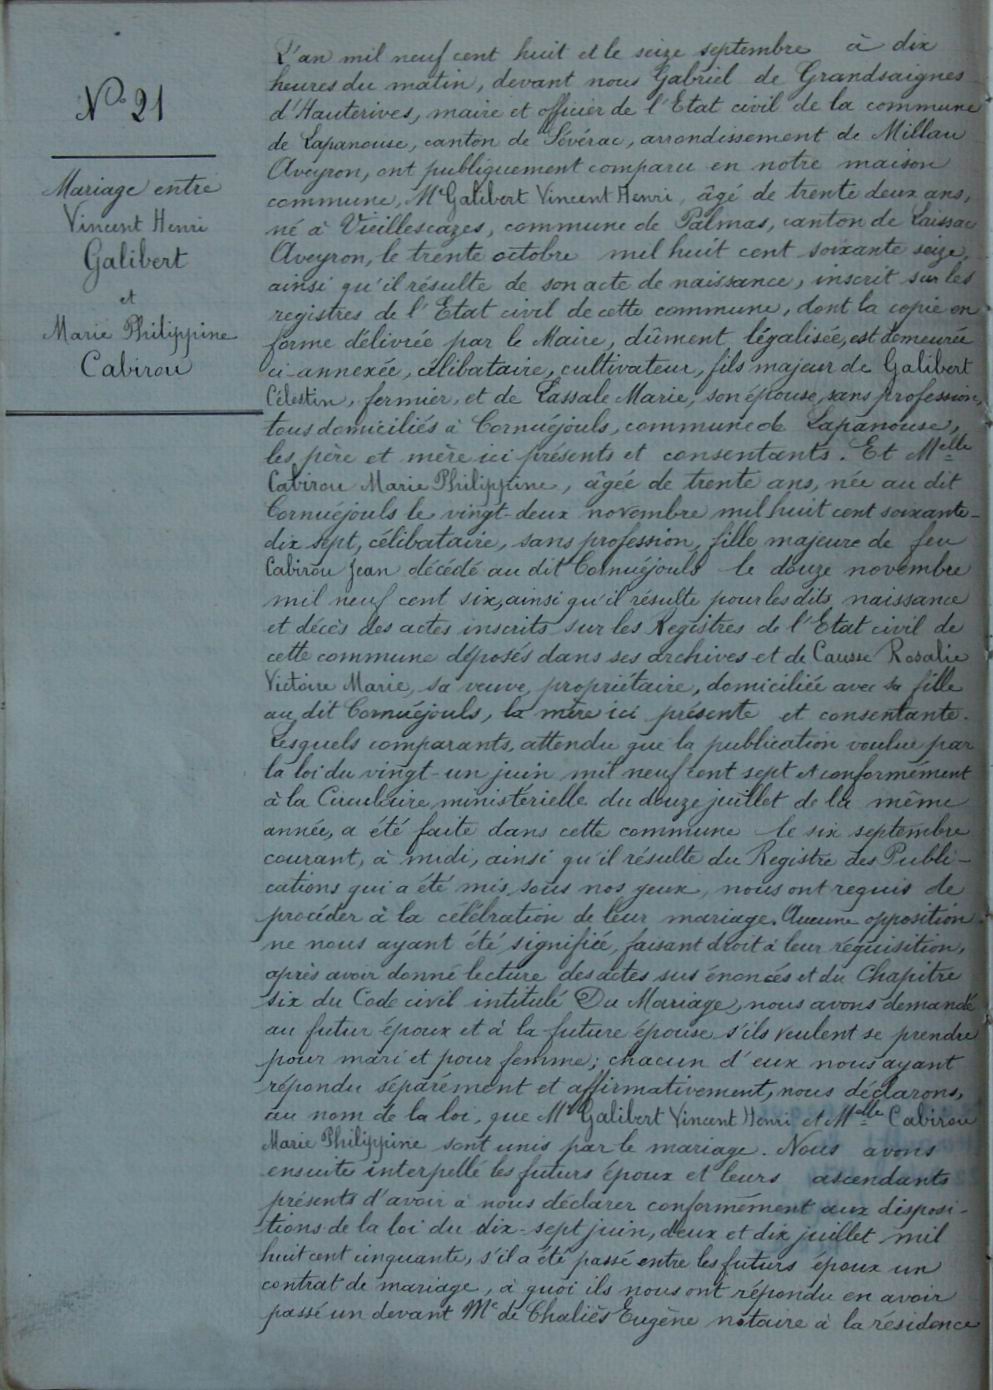 N° 21
Mariage entre
Vincent Henri
Galibert
et
Marie Philippine
Cabirou
L'an mil neuf cent huit et le seize septembre à dix
heures du matin, devant nous Gabriel de Grandsaignes
d'Hauterives, maire et officier de l'Etat civil de la commune
de Lapanouse, canton de Sévérac, arrondissement de Millau
Aveyron, ont publiquement comparu en notre maison
commune, Mr Galibert Vincent Henri, âgé de trente deux ans,
né à Vieillescazes, commune de Palmas, canton de Laissac
Aveyron, le trente octobre mil huit cent soixante seize,
ainsi qu'il résulte de son acte de naissance, inscrit sur les
registres de l'Etat civil de cette commune, dont la copie en
forme délivrée par le Maire, dûment légalisée, est demeurée
ci-annexée, célibataire, cultivateur, fils majeur de Galibert
Célestin, fermier, et de Lassale Marie, son épouse, sans profession,
tous domiciliés à Cornuéjouls, commune de Lapanouse,
les père et mère ici présents et consentants. Et Melle
Cabirou Marie Philippine, âgée de trente ans, née au dit
Cornuéjouls le vingt-deux novembre mil huit cent soixante-
dix sept, célibataire, sans profession, fille majeure de feu
Cabirou Jean décédé au dit Cornuéjouls le douze novembre
mil neuf cent six, ainsi qu'il résulte pour les dits naissance
et décès des actes inscrits sur les Registres de l'Etat civil de
cette commune déposés dans ses archives et de Causse Rosalie
Victoire Marie, sa veuve, propriétaire, domiciliée avec sa fille
au dit Cornuéjouls, la mère ici présente et consentante.
Lesquels comparants, attendu que la publication voulue par
la loi du vingt-un juin mil neuf cent sept et conformément
à la Circulaire ministérielle du douze juillet de la même
année, a été faite dans cette commune le six septembre
courant, à midi, ainsi qu'il résulte du Registre des Publi-
cations qui a été mis sous nos yeux, nous ont requis de
procéder à la célébration de leur mariage. Aucune opposition
ne nous ayant été signifiée, faisant droit à leur réquisition,
après avoir donné lecture des actes sus énoncés et du Chapitre
six du Code civil intitulé Du Mariage, nous avons demandé
au futur époux et à la future épouse s'ils veulent se prendre
pour mari et pour femme; chacun d'eux nous ayant
répondu séparément et affirmativement, nous déclarons,
au nom de la loi, que Mr Galibert Vincent Henri et Melle Cabirou
Marie Philippine sont unis par le mariage. Nous avons
ensuite interpellé les futurs époux et leurs ascendants
présents d'avoir à nous déclarer conformément aux disposi-
tions de la loi du dix-sept juin, deux et dix juillet mil
huit cent cinquante, s'il a été passé entre les futurs époux un
contrat de mariage, à quoi ils nous ont répondu en avoir
passé un devant Me de Chaliès Eugène notaire à la résidence